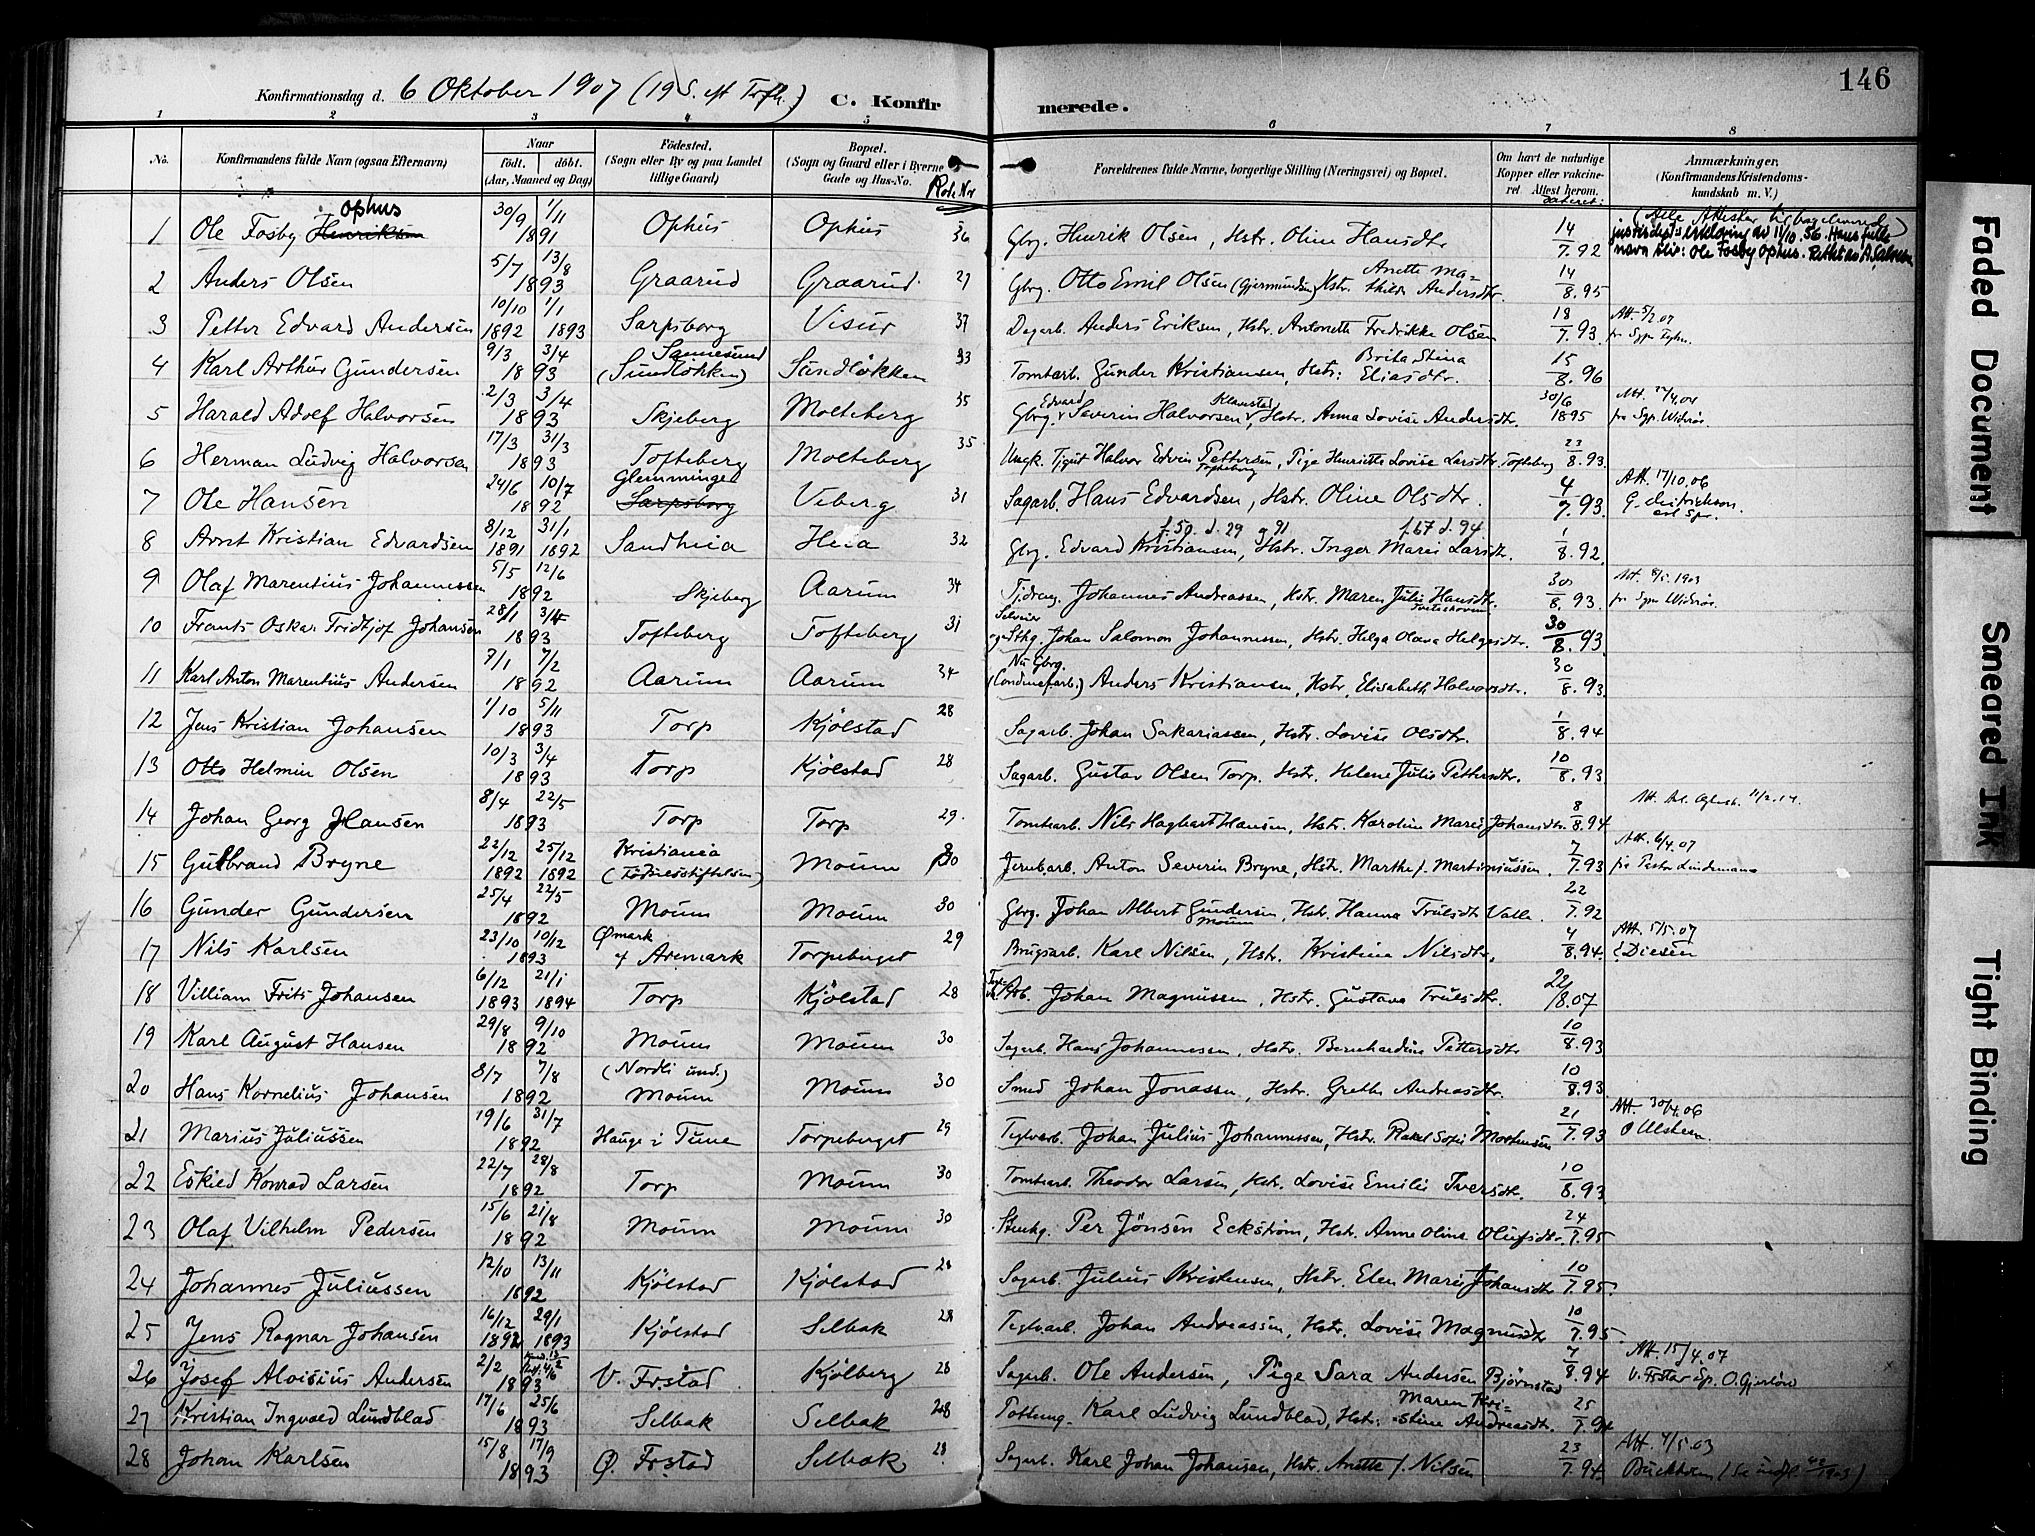 146
Konfirmationsdag d. 6 Oktober 1907 (19 S. eft Trfh.) C. Konfirmerede.
1 2 3 4 5 6 7 8
No. Konfirmandens fulde Navn (ogsaa Efternavn) Naar født. døbt. (Aar, Maaned og Dag) Fødested. (Sogn eller By og paa Landet tillige Gaard) Bopæl. (Sogn og Gaard eller i Byerne Gade og Hus-No. Rode Nr Forældrenes fulde Navne, borgerlige Stilling (Næringsvei) og Bopæl. Om havt de naturlige Kopper eller vaccineret. Attest herom. dateret: Anmærkninger. (Konfirmandens Kristendomskundskab m. V.)
1 Ole Fosby Henriksen Ophus 30/9 1/11 1891 Ophus Ophus 36 Gbrg. Henrik Olsen, Hstr. Oline Hansdtr 14/7.92
2 Anders Olsen 5/7 13/8 1893 Graarud Graarud 27 Gbrg. Otto Emil Olsen (Gjermundsen) Hstr. Anette Mathilde Andersdtr. 14/8.95
3 Petter Edvard Andersen 10/10 1892 1/1 1893 Sarpsborg Visur 37 Dagarb. Anders Eriksen, Hstr. Antonette Fredrikke Olsen 18/7.93 Att. 5/2 07
4 Karl Arthur Gundersen 9/3 3/4 1893 Sannesund (Sundløkken) Sundløkken 33 Tomtarb. Gunder Kristiansen, Hstr: Brita Stina Eliasdtr. 15/8.96
5 Harald Adolf Halvorsen 2/3 3/4 1893 Skjeberg Molteberg 35 Gbrg. Edvard Severin Halvorsen Klavestad, Hstr. Anna Lovise Andersdtr. 30/6 1895
6 Herman Ludvig Halvorsen 17/3 31/3 1893 Tofteberg Molteberg 35 Ungk. Tjgut Halvor Edvin Pettersen Tofteberg, Pige Henriette Lovise Larsdtr. Tofteberg 23/8.93
7 Ole Hansen 24/6 10/7 1892 Glemminge Sarpsborg Viberg 31 Sagarb. Hans Edvardsen, Hstr. Oline Olsdtr. 4/7.93. Att. 17/10.06
8 Arnt Kristian Edvardsen 8/12 1891 31/1 1892 Sandheia Heia 32 Gbrg. Edvard Kristiansen, Hstr. Inger Marie Larsdtr. f.50. d. 29 9 91 f.67 d. 94 1/8.92
9 Olaf Marentius Johannessen 5/5 12/6 1892 Skjeberg Aarum 34 Tjdreng. Johannes Andreassen, Hstr. Maren Julie Hansdtr. 30/8.93. Att. 8/5. 1903
10 Frants Oskar Fridtjof Johansen 28/1 3/4 1893 Tofteberg Tofteberg 31 Selveier og Sthg. Johan Salomon Johannessen, Hstr. Helga Olava Helgesdtr. 30/8.93
11 Karl Anton Marentius Andersen 7/1 7/2 1892 Aarum Aarum 34 Nu Gbrg. Anders Kristiansen, Hstr. Elisabeth Halvorsdtr. 30/8.93
12 Jens Kristian Johansen 1/10 5/11 1893 Torp Kjølstad 28 Sagarb. Johan Sakariassen, Hstr. Lovise Olsdtr. 1/8.94
13 Otto Helmin Olsen 10/3 3/4 1893 Torp Kjølstad 28 Sagarb. Gustav Olsen Torp. Hstr. Helene Julie Pettersdtr. 10/8.93
14 Johan Georg Hansen 8/4 22/5 1893 Torp Torp 29. Tomtearb. Nils Hagbart Hansen, Hstr. Karoline Marie Johansdtr. 8/8.94
15 Gulbrand Bryne 22/12 1892 25/12 1892 Kristiania (Fødselsstiftelsen) Moum 30 Jernbarb. Anton Severin Bryne, Hstr. Marthe f. Martiniussen. 7/7.93 Att. 6/4.07 fra Pastor Lindemann
16 Gunder Gundersen 25/4 22/5 1892 Moum Moum 30 Gbrg. Johan Albert Gundersen Moum, Hstr. Hanna Trulsdtr Valle. 22/7.92
17 Nils Karlsen 23/10 10/12 1893 Ømark of Aremark Torpeberget 29 Brugsarb. Karl Nilsen, Hstr. Kristine Nilsdtr. 4/8.94. Att. 1/5.07 E. Diesen
18 Villiam Frits Johansen 6/12 1893 21/1 1894 Torp Kjølstad 28 Johan Magnussen, Hstr. Gustava Trulsdtr. 22/8.07
19 Karl August Hansen 29/8 9/10 1892 Moum Moum 30 Sagarb. Hans Johannessen, Hstr. Bernhardine Pettersdtr 10/8.93
20 Hans Kornelius Johansen 8/7 7/8 1892 (Nordli und.) Moum Moum 30 Smed Johan Jonassen, Hstr. Grethe Andreasdtr. 10/8.93
21 Marius Juliussen 19/6 31/7 1892 Hauge i Tune Torpeberget 29 Teglvarb. Johan Julius Johannessen, Hstr. Rakel Sofie Mortensen 21/7.93 Att. 30/4.06 O Ulstein
22 Eskild Konrad Larsen 22/7 28/8 1892 Torp Moum 30 Tomtearb. Theodor Larsen, Hstr. Lovise Emilie Iversdtr. 10/8.93
23 Olaf Vilhelm Pedersen 15/6 21/8 1892 Moum Moum 30 Stenhg. Per Jönsen Eckström, Hstr. Anne Olina Olufsdtr. 24/7.95
24 Johannes Juliussen 12/10 13/11 1892 Kjølstad Kjølstad 28 Sagarb. Julius Kristensen, Hstr. Elen Marie Johansdtr 10/7.95.
25 Jens Ragnar Johansen 16/12 1892 29/1 1893 Kjølstad Selbak 28 Teglvarb. Johan Andreassen, Hstr. Lovise Magnusdtr 10/7.95.
26 Josef Aloisius Andersen 2/2 1893 V. Frstad Kjølberg 28 Sagarb. Ole Andersen, Pige Sara Andersen Bjørnstad 7/8.94 Att. 15/4.07 V. Frstad Sp. O. Gjerløw
27 Kristian Ingvald Lundblad 17/6 25/6 1893 Selbak Selbak 28 Tottung. Karl Ludvig Lundblad, Hstr: Maren Kristine Andreasdtr. 25/7.94
28 Johan Karlsen 15/8 17/9 1893 Ø. Frstad Selbak 28 Sagarb. Karl Johan Johansen, Hstr. Anette f. Nilsen 23/7.94. Att. 4/5.03
Faded Document
Smeared Ink
Tight Binding